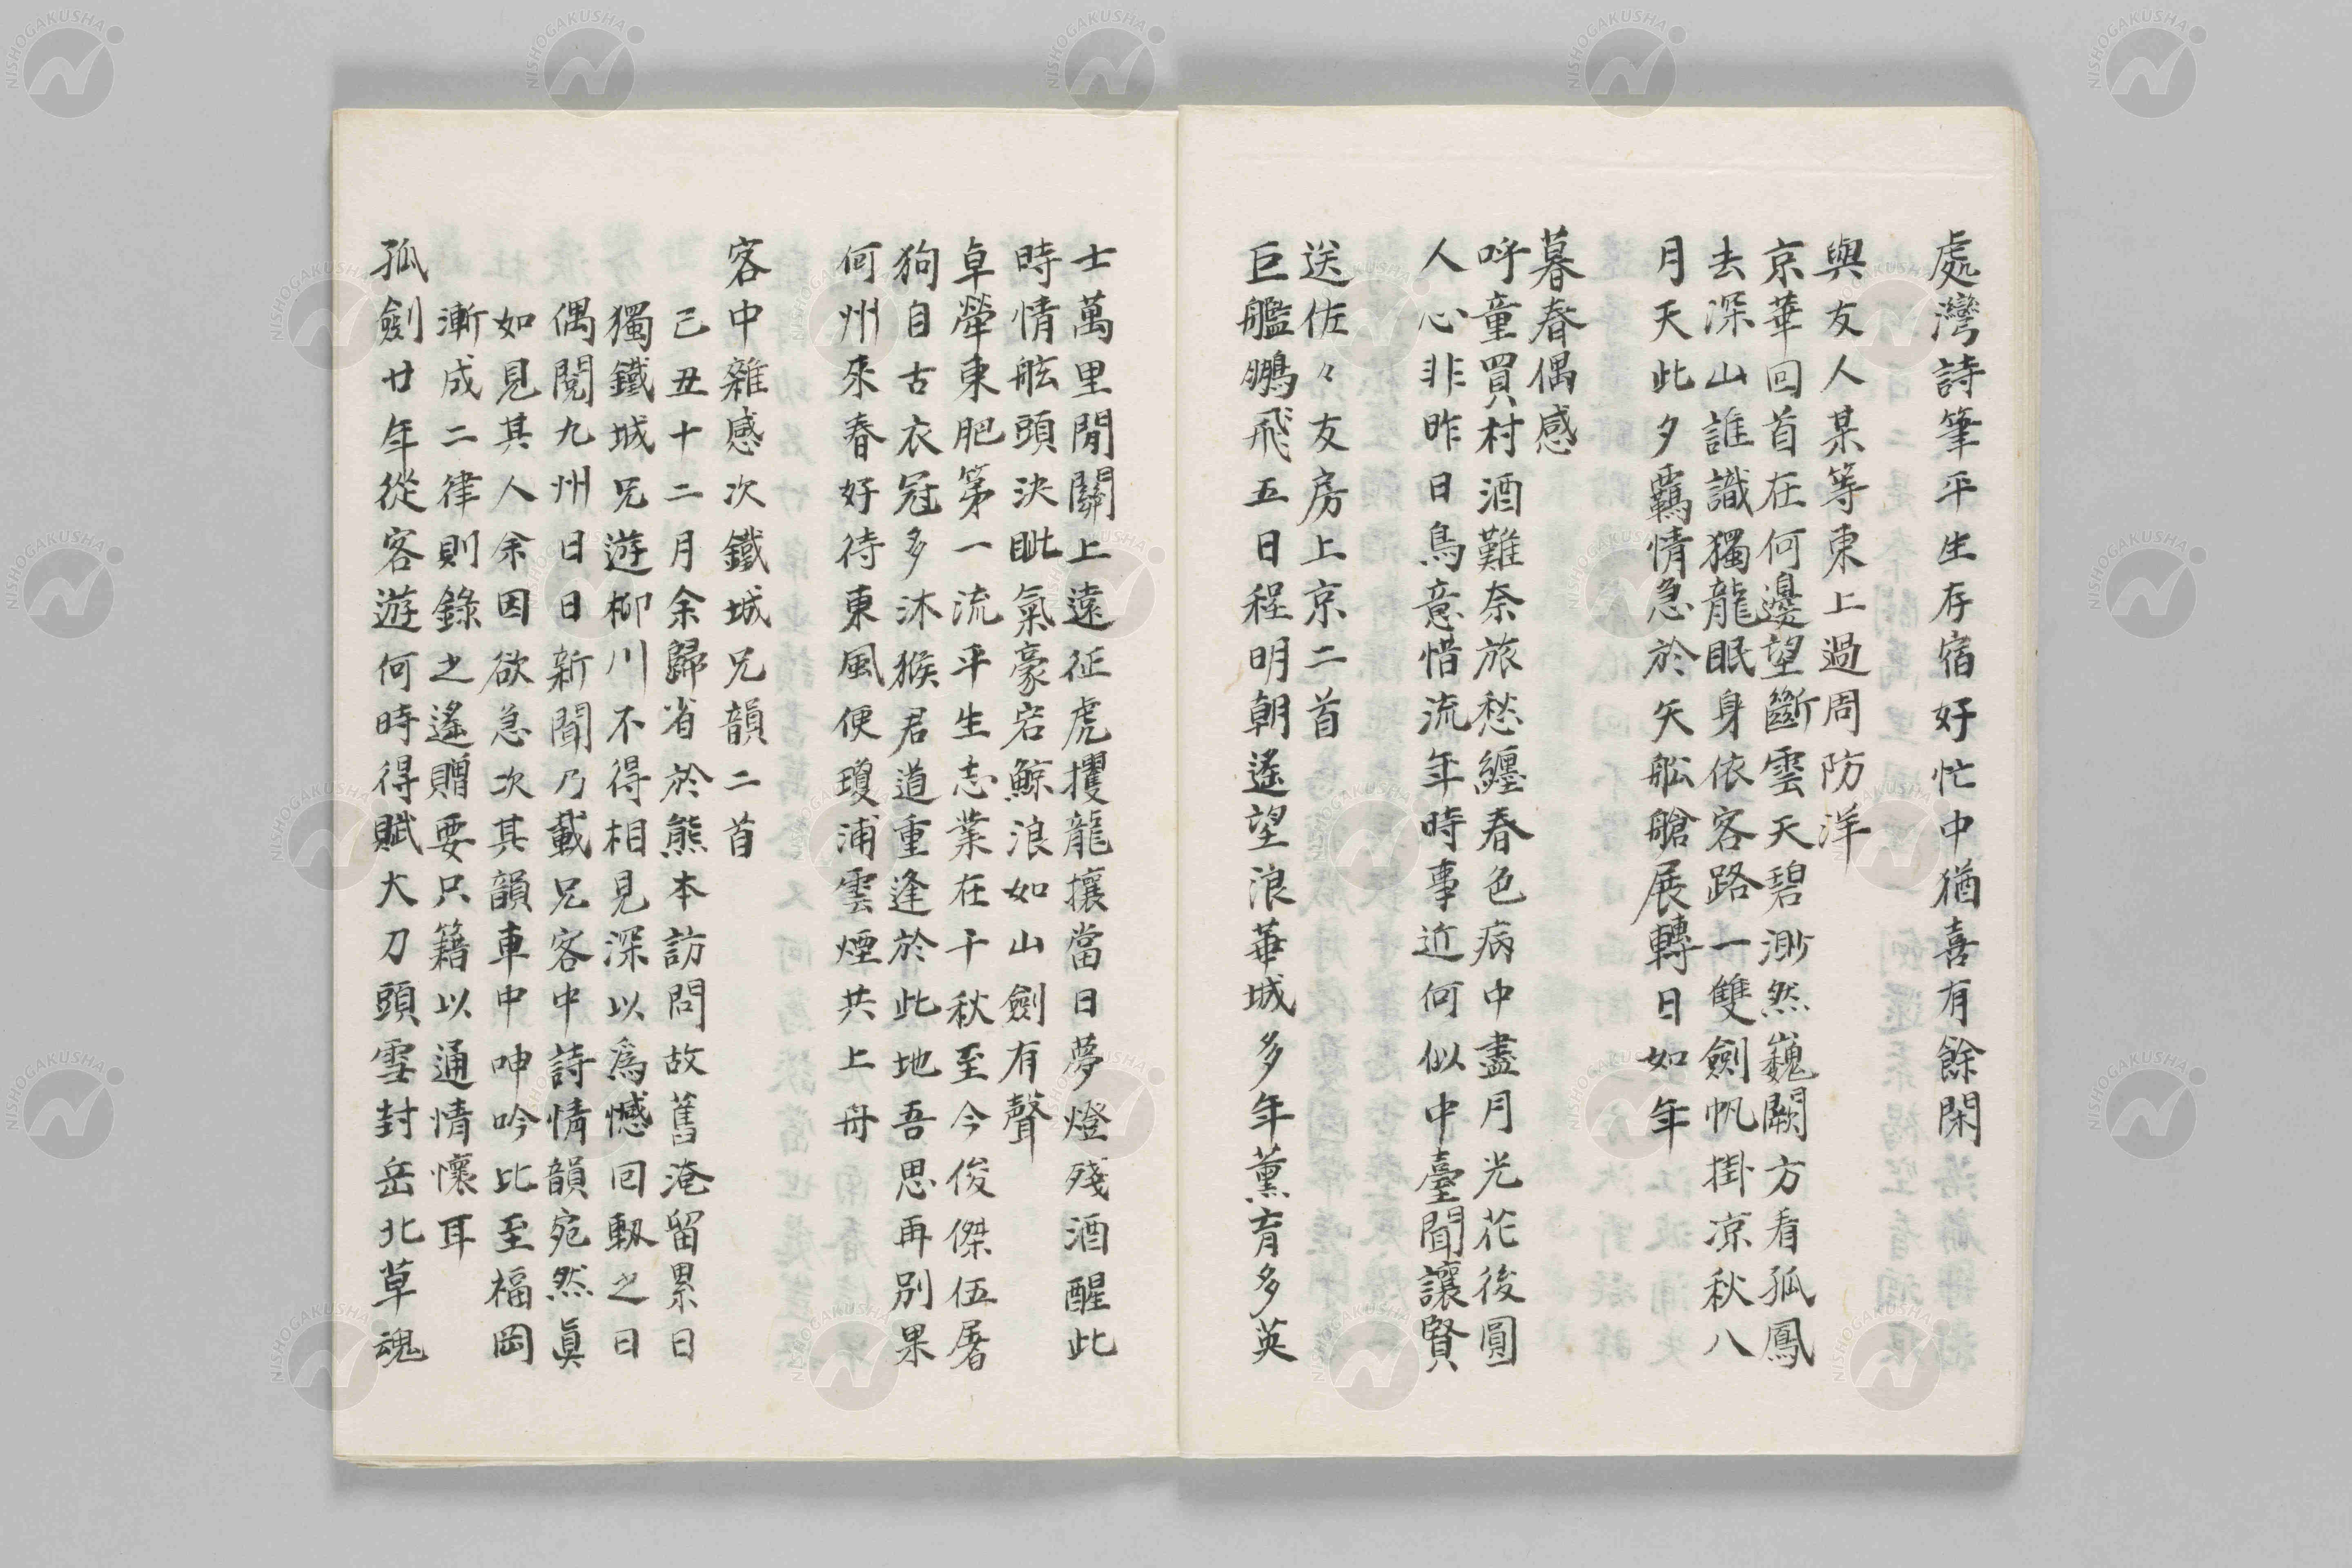 處灣詩筆平生存宿好忙中猶喜有餘閑
與友人某等東上過周防洋
京華回首在何邊望斷雲天碧渺然巍闕方看孤鳳
去深山誰識獨龍眠身依客路一雙劍帆掛凉秋八
月天此夕羈情急於矢舩艙展轉日如年
暮春偶感
呼童買村酒難奈旅愁纏春色病中盡月光花後圓
人心非昨日鳥意惜流年時事近何似中臺聞讓賢
送佐々友房上京二首
巨艦鵬飛五日程明朝遙望浪華城多年薰育多英
士萬里閒關上遠征虎攫龍攘當日夢燈殘酒醒此
時情舷頭決眦氣豪宕鯨浪如山劍有聲
卓犖東肥第一流平生志業在千秋至今俊傑伍屠
狗自古衣冠多沐猴君道重逢於此地吾思再別果
何州來春好待東風便瓊浦雲煙共上舟
客中雜感次鐵城兄韻二首
己丑十二月余歸省於熊本訪問故舊淹留累日
獨鐵城兄遊柳川不得相見深以爲憾回軔之日
偶閱九州日日新聞乃載兄客中詩情韻宛然眞
如見其人余因欲急次其韻車中呻吟比至福岡
漸成二律則錄之遙贈要只籍以通情懷耳
孤劍廿年從客遊何時得賦大刀頭雪封岳北草魂
NISHOGAKUSHA
NISHOGAKUSHA
NISHOGAKUSHA
NISHOGAKUSHA
NISHOGAKUSHA